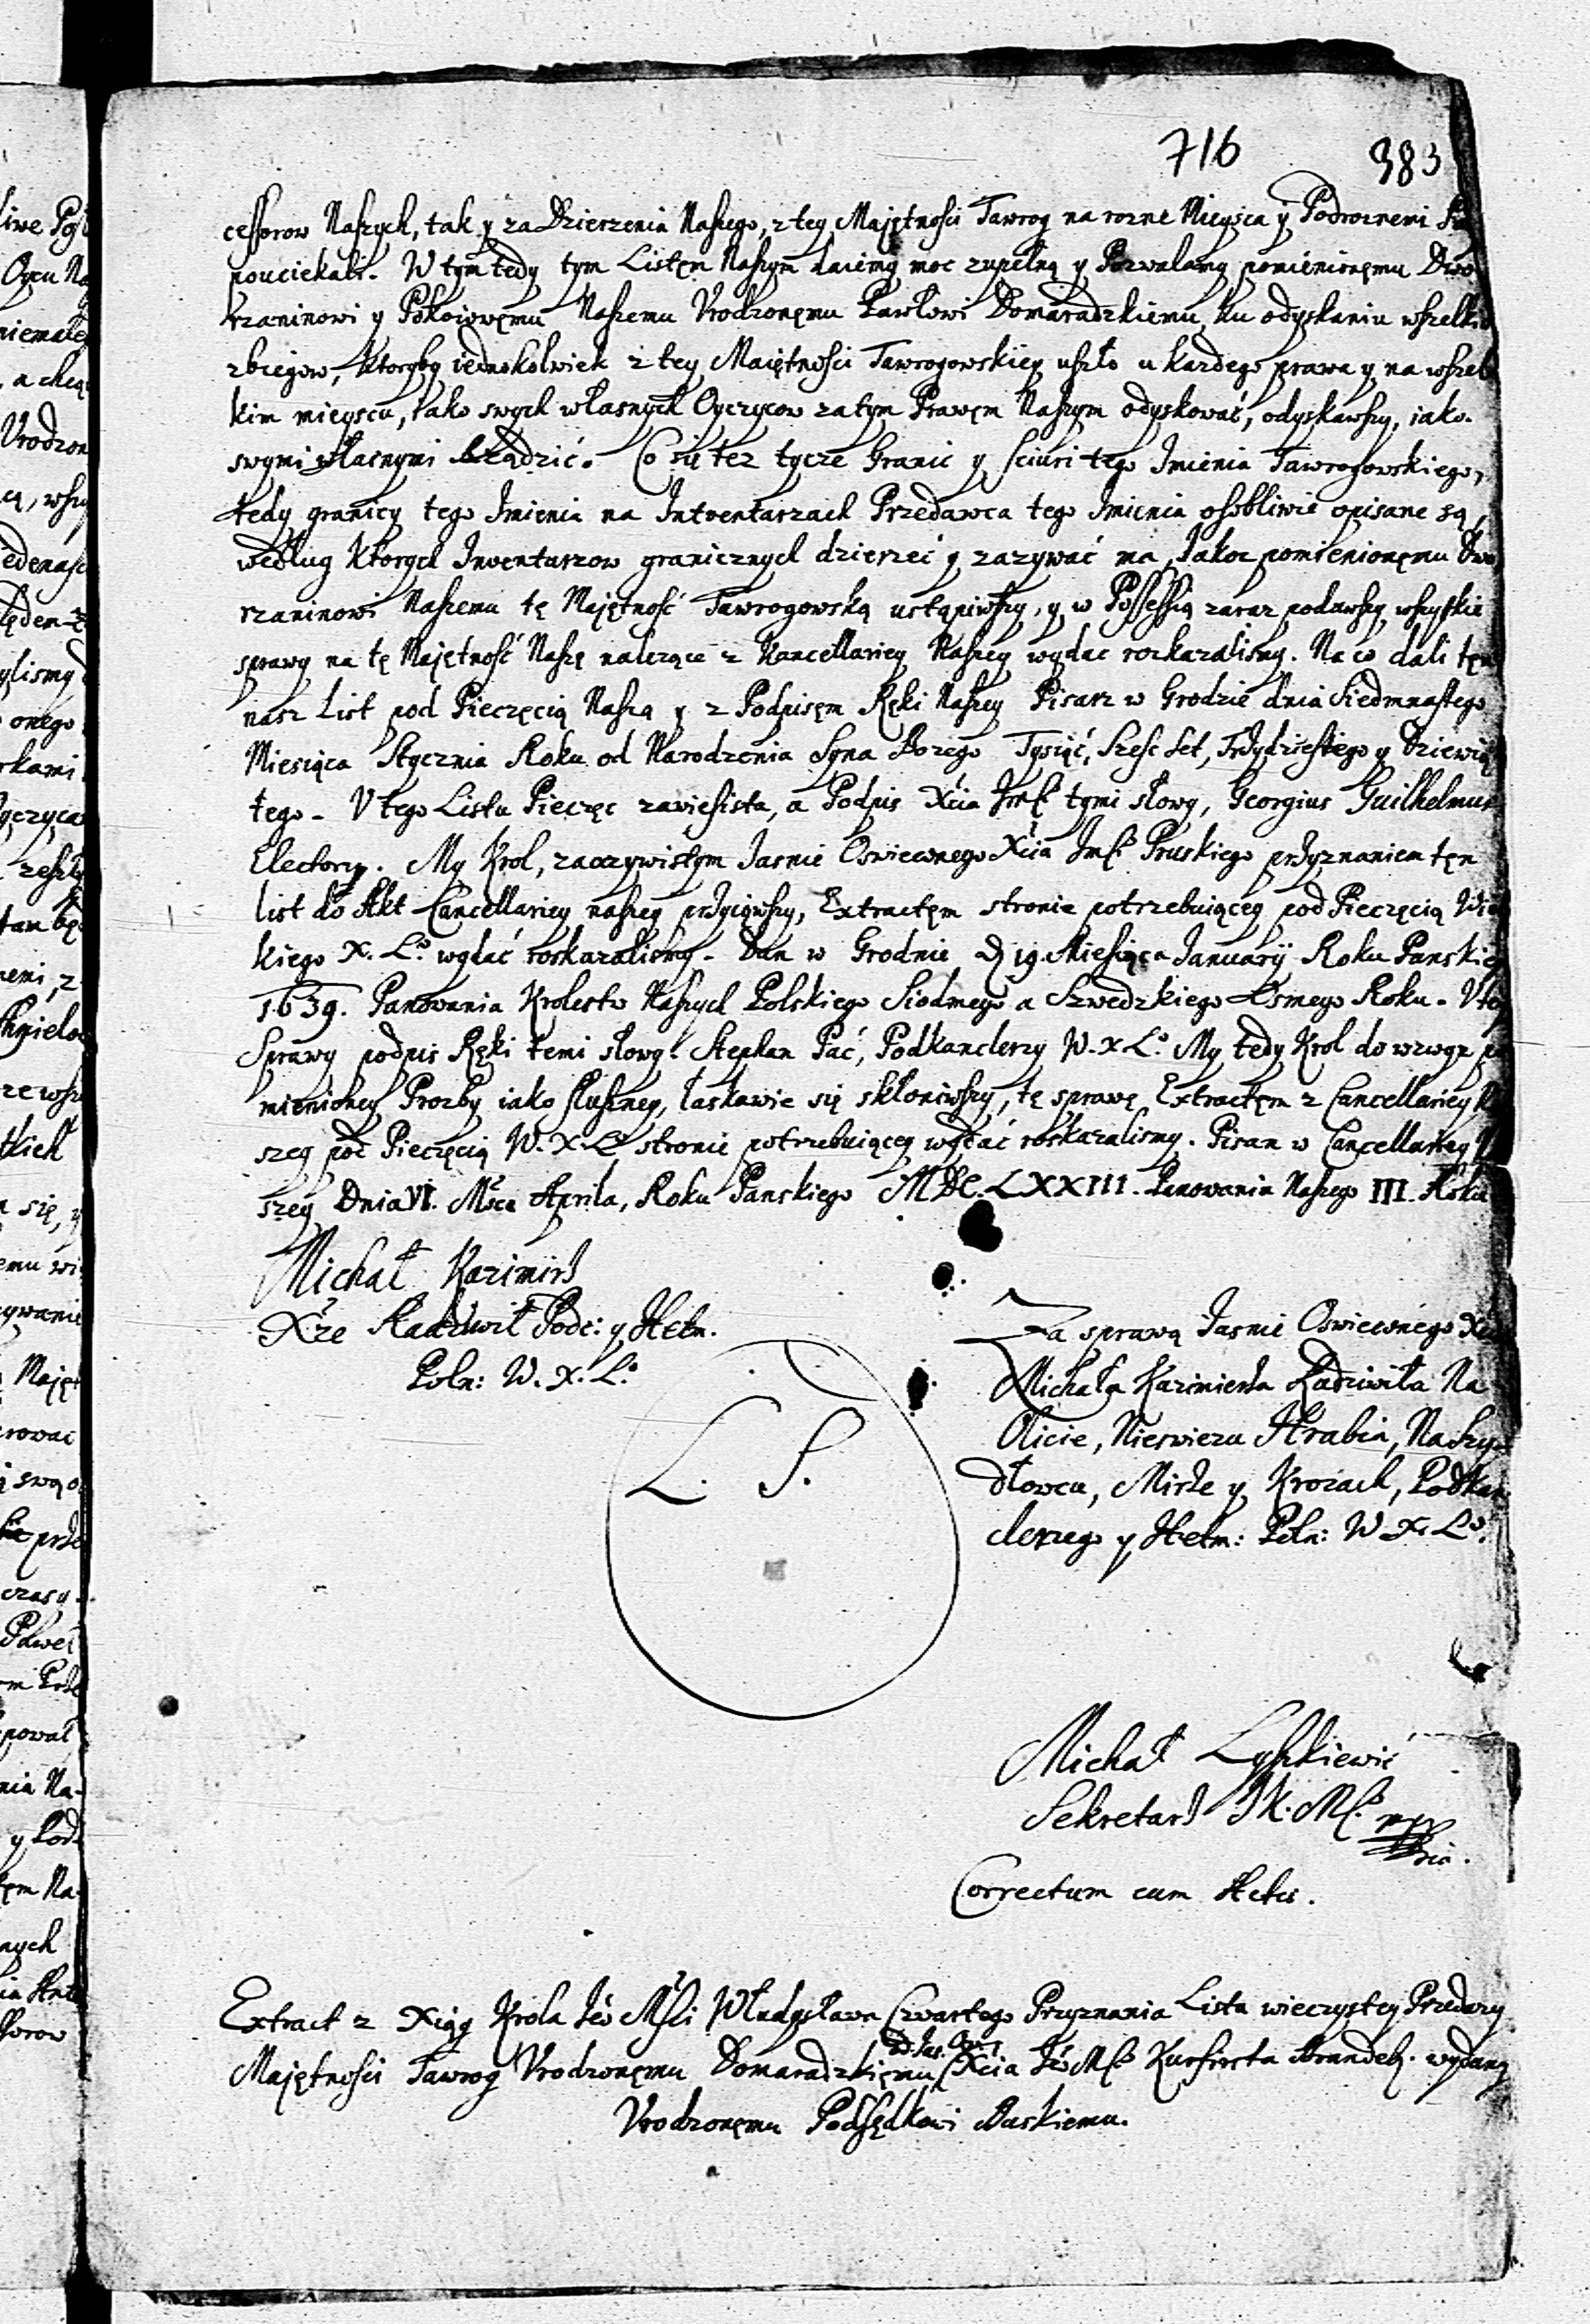 716 383
cessorow Naszych, tak y za Dzierzenia Naszego, z tey Majętności Tawrog na rozne Mieysca y Podroznemi
pouciekali. W tym tedy tym Listem Naszym daiemy moc zupełną y Pozwalamy pomienionęmu Dwo
rzaninowi y Pokoiowęmu Naszemu Vrodzonęmu Pawłowi Domaradzkiemu, ku odyskaniu wszelkich
zbiegow, ktoryby iednokolwiek z tey Maiętności Tawrogowskiey uszło u kazdego prawa y na wszel
kim mieyscu, iako swych własnych Oyczycow za tym Prawęm Naszym odyskować, odyskawszy, iako
swymi własnymi rządzić. Co się tez tycze Granic y sciśni tego Imienia Tawrogowskiego,
tedy granicy tego Imienia na Intventarzach Przedawca tego Imienia osobliwie opisane są,
według ktorych Inwentarzow granicznych dzierzeć y zazywać ma, Jakoz pomienionęmu Dwo
rzaninowi Naszemu tę Majętność Tawrogowską ustąpiwszy, y w Possessią zaraz podawszy, wszystkie
sprawy na tę Majętność Naszę nalezące z Kancellariey Naszey wydac rozkazalismy. Na co dali tęn
nasz List pod Pieczęcią Naszą y z Podpisęm Ręki Naszey Pisarz w Grodzie dnia Siedmnastego
Miesiąca Stycznia Roku od Narodzenia Syna Bozego Tysiąć, Szesc Set, Trzydziestego y Dziewią
tego - V tego Listu Pieczęc zawiesista, a Podpis Xcia Jmsci tymi słowy, Georgius Guilhelmus
Elector. My Krol, za oczywistym Jasnie Oswiecwnego Xcia Jmsci Pruskiego przyznaniem tęn
list do Akt Cancellariey naszey przyiąwszy, Extractęm stronie potrzebuiącey pod Pieczęcią Wiel
kiego X. Lo wydać roskazalismy - Dan w Grodnie D 19. Miesiąca Januarÿ Roku Panskieg
1639. Panowania Krolestw Naszych Polskiego Siodmego a Szwedzkiego Osmego Roku - V tey
Sprawy podpis Ręki temi słowy. Stephan Pać, Podkanclerzy W. X L. My tedy Krol do wzwyz po
mienioney Prozby iako słuszney, łaskawie się skłoniwszy, tę sprawę Extractęm z Cancellariey Na
szey pod Pieczęcią W. X. Lo stronie potrzebuiącey wydać roskazalismy. Pisan w Cancellariey Na
szey Dnia VI. Msca Aprila, Roku Panskiego MDC. LXXIII. Panowania Naszego III. Roku
Michał Kazimirz
Xże Radziwił Podc: y Hetm.
Poln: W. X. Lo
L. S.
Za sprawą Jasnie Oswiecwnego Xcia
Michała Kazimierza Radziwiła Na
Olicie, Nieswiezu Hrabia, Na Szy
dłowcu, Mirze y Krozach, Podkan
clerzego y Hetm: Poln: W X. Lo
Michał Lyszkiewić
Sekretarz JK. Mści mpp
Correctum cum Actis.
Extract z Xiąg Krola Jeo Mśći Władysława Czwartego Przyznania Listu wieczystey Przedazy
Majętności Tawrog Vrodzonęmu Domaradzkięmu Xcia Jeo Msci Kurfirsta Brandeb. wydany
Vrodzonęmu Podsędkowi